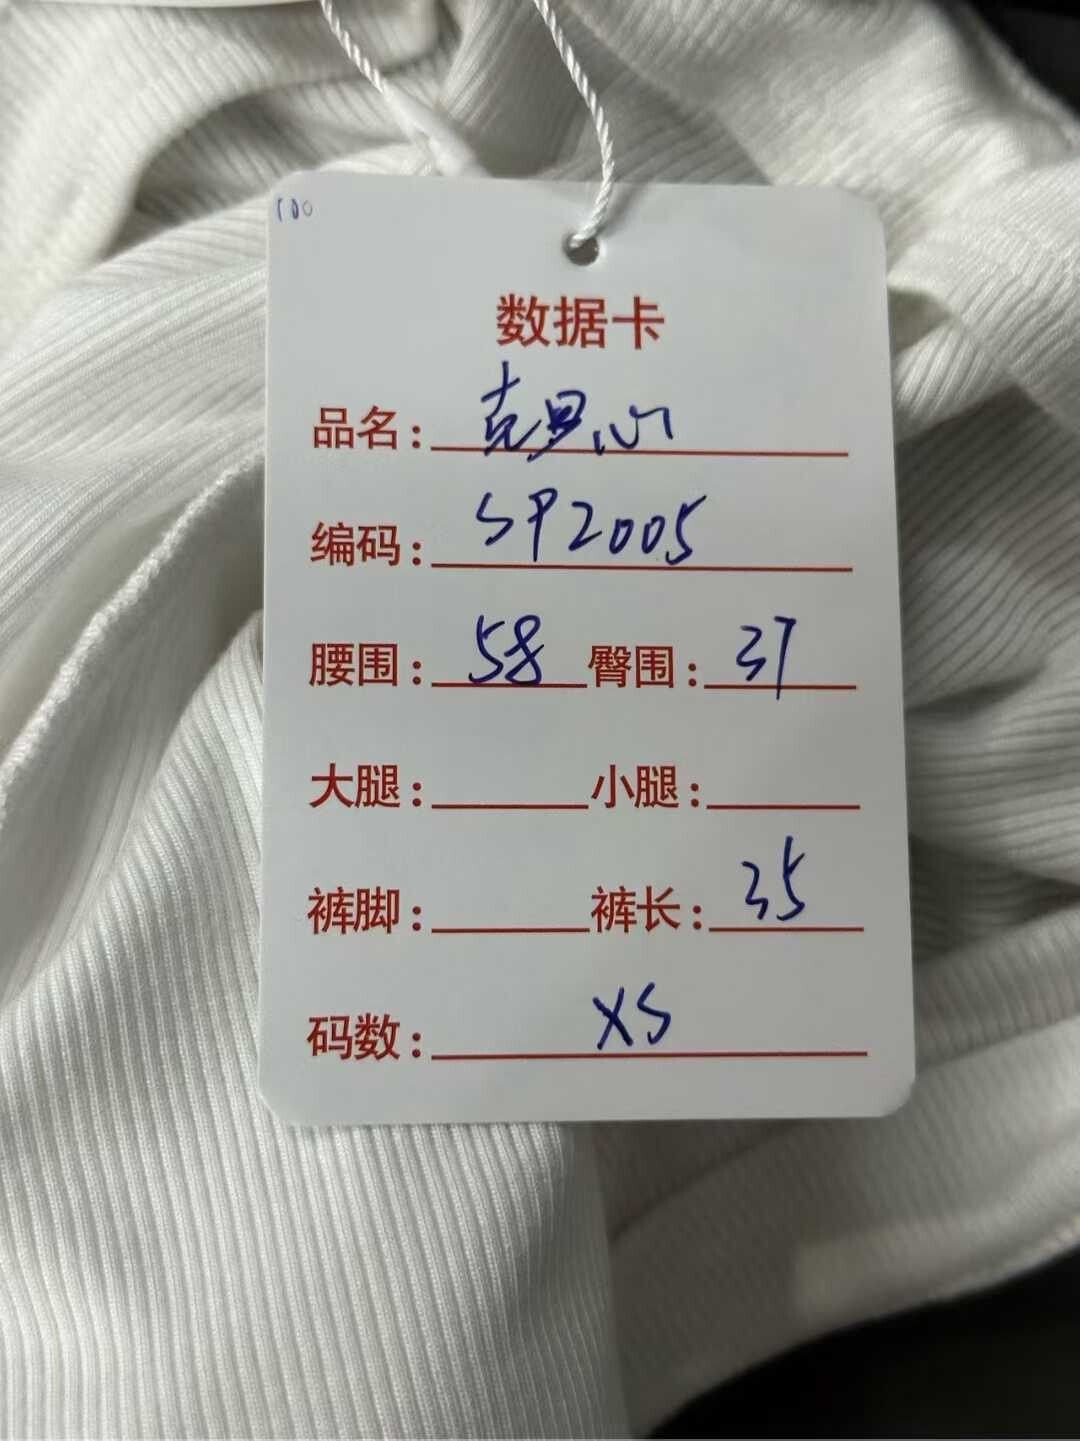 100
数据卡
品名: 克罗心
编码: SP2005
腰围: 58 臀围: 37
大腿: 小腿:
裤脚: 裤长: 35
码数: XS